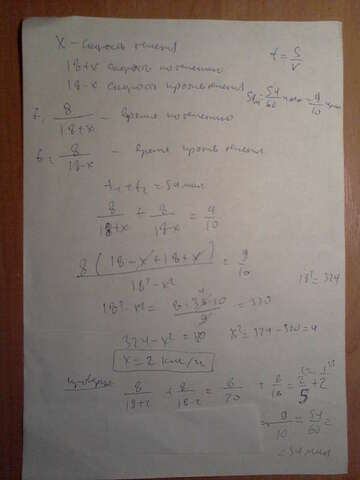 x - скорость течения
t = S/v
18+x скорость по течению
18-x скорость против течения
54м = 54/60 часа = 9/10 часа
t₁ 8/(18+x) - время по течению
t₂ 8/(18-x) - время против течения
t₁ + t₂ = 54 мин
8/(18+x) + 8/(18-x) = 9/10
8(18-x+18+x)/(18²-x²) = 9/10
18² = 324
18²-x² = 8·36·10/9 = 320
324-x² = 320 x² = 324-320 = 4
x = 2 км/ч
проверка 8/(18+2) + 8/(18-2) = 8/20 + 8/16 = 2/5 + 1/2
= 9/10 = 54/60 =
= 54 мин